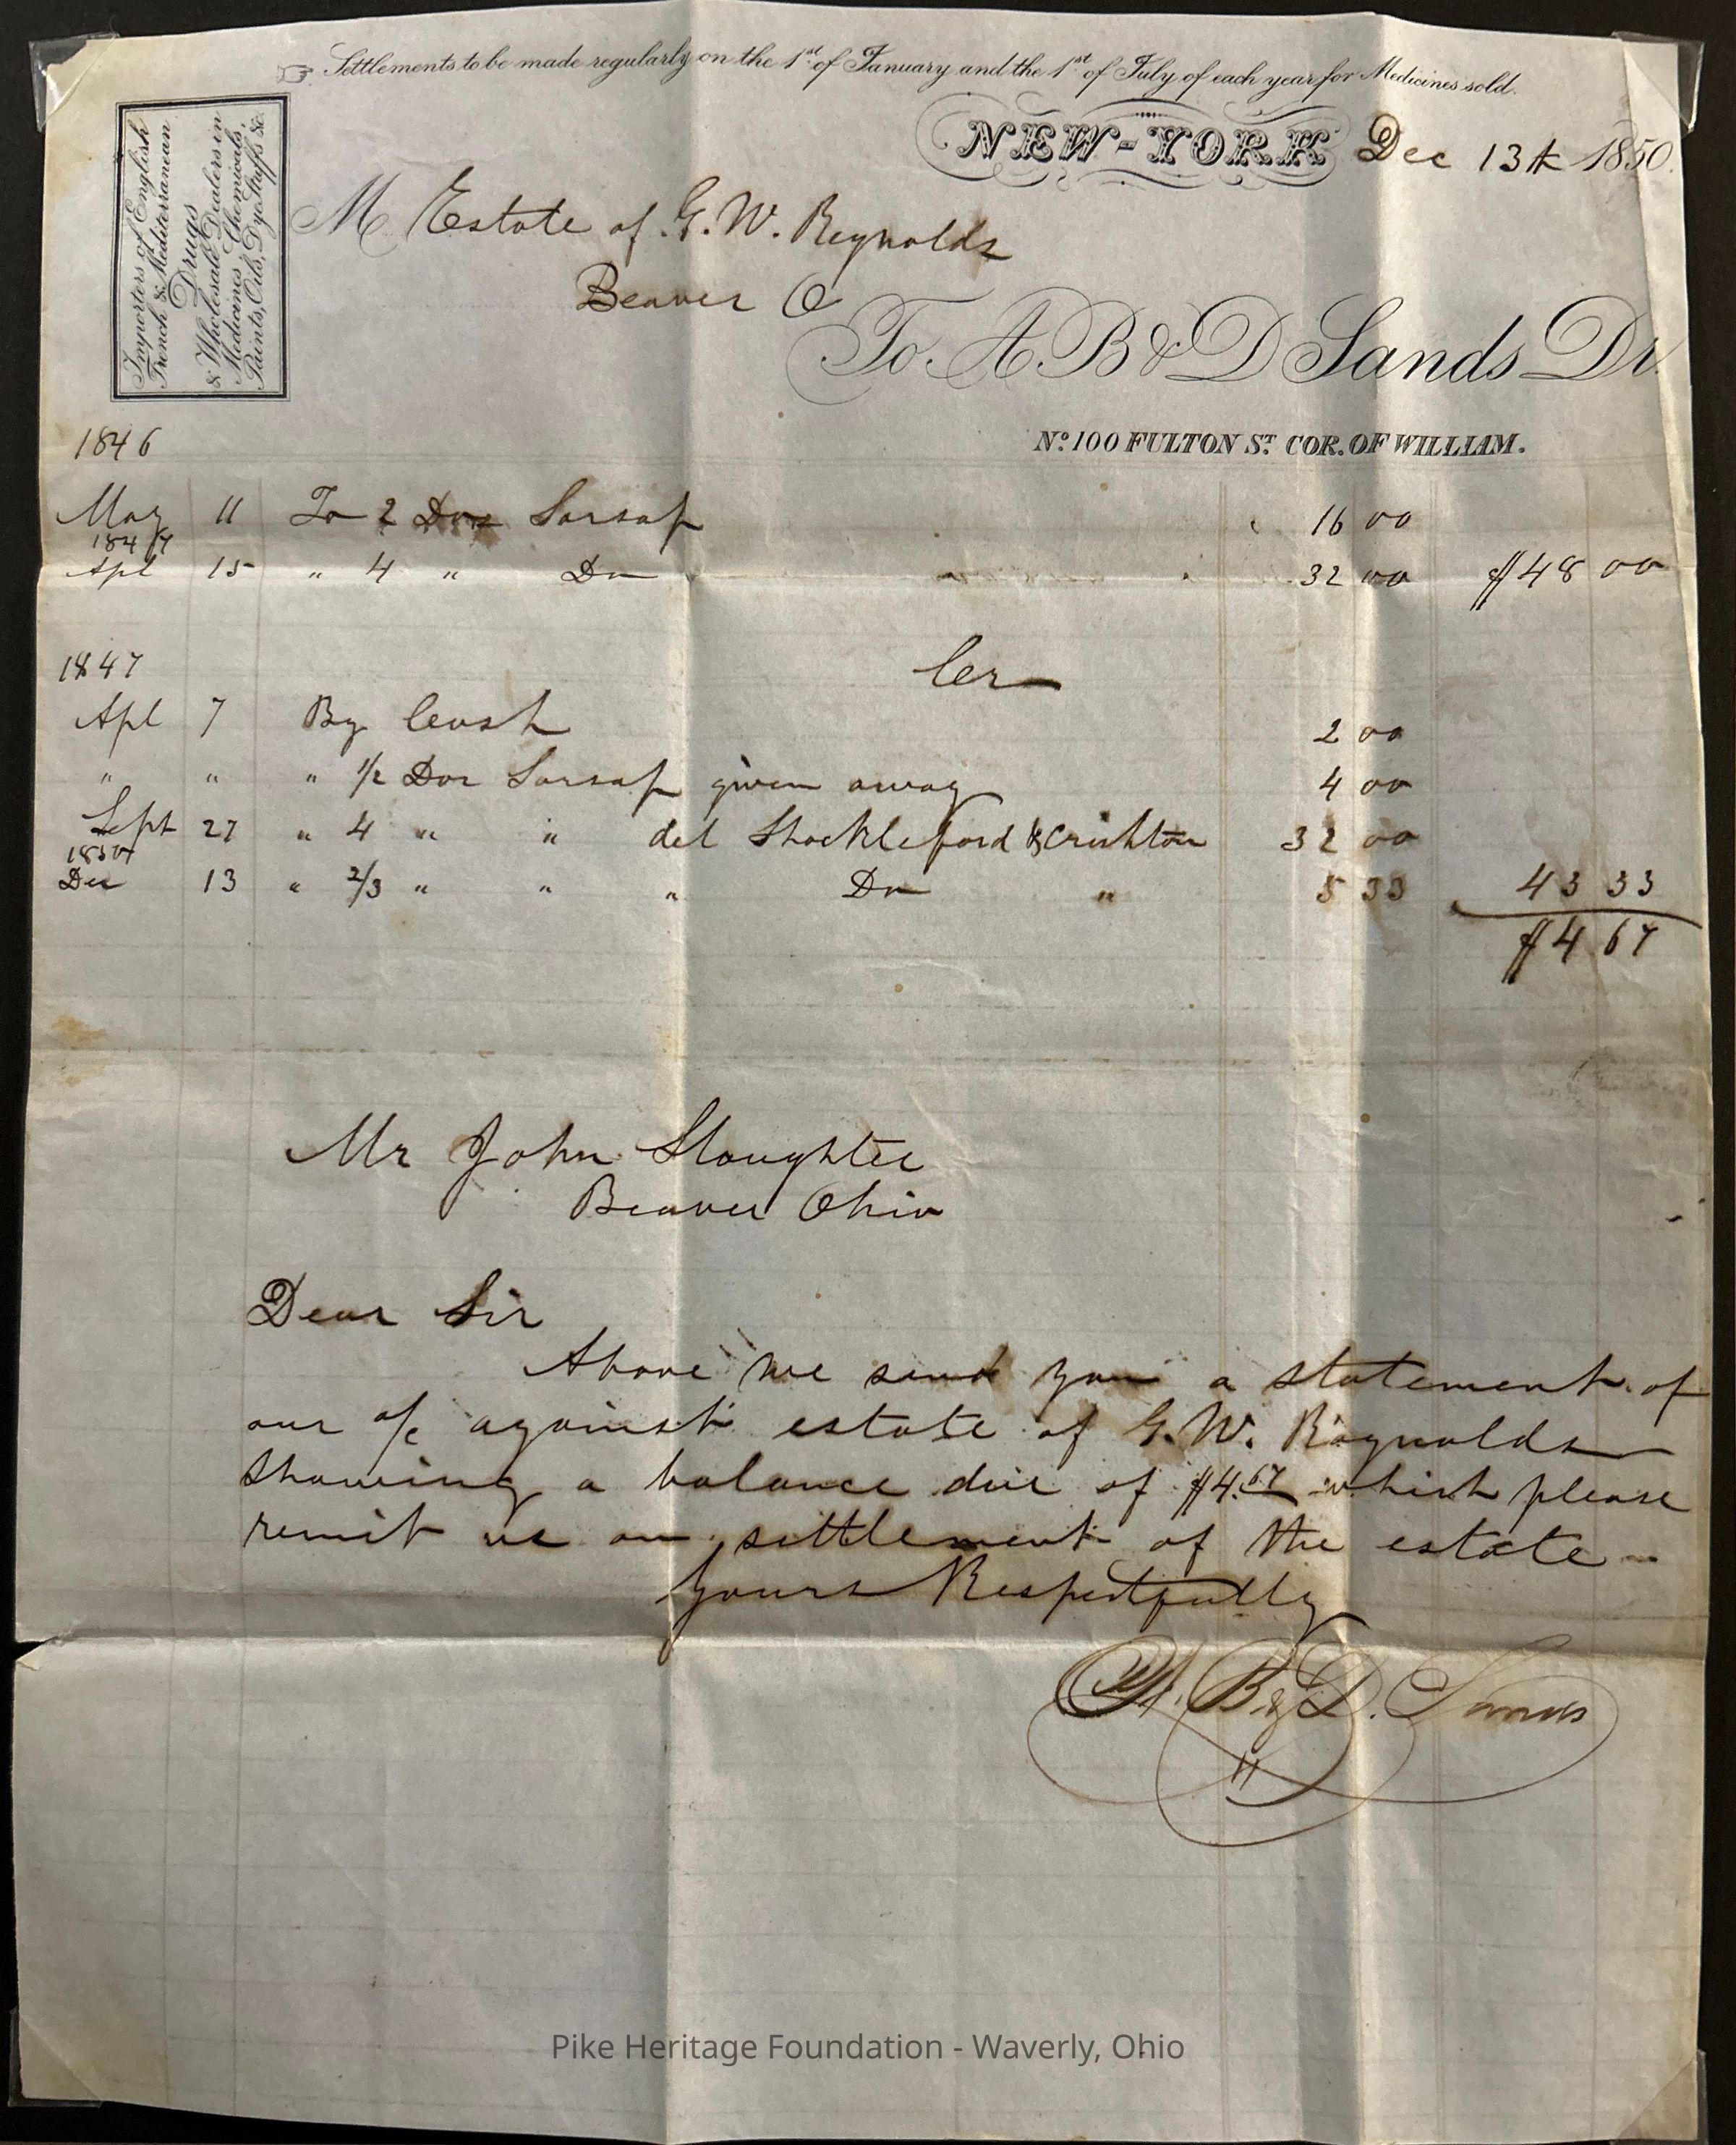 ☞ Settlements to be made regularly on the 1st of January and the 1st of July of each year for Medicines sold.
NEW-YORK Dec 13th 1850.
Importers of English
French & Mediterranean
Drugs
& Wholesale Dealers in
Medicines, Chemicals,
Paints, Oils, Dye Stuffs &c.
M Estate of G. W. Reynolds
Beaver O
To A. B & D Sands Dr.
No. 100 FULTON ST. COR. OF WILLIAM.
1846
May 11 To 2 Doz Sarsap 16 00
1847
Apl 15 " 4 " Do 32 00 $48 00
1847 Cr
Apl 7 By Cash 2 00
" " " 1/2 Doz Sarsap given away 4 00
Sept 27 " 4 " " del Shackleford & Crichton 32 00
1850
Dec 13 " 2/3 " " " Do " 5 33 43 33
$4 67
Mr John Slaughter
Beaver Ohio
Dear Sir
Above we send you a statement of
our a/c against estate of G. W. Reynolds
showing a balance due of $4.67 which please
remit us on settlement of the estate
Yours Respectfully
A. B. & D. Sands
Pike Heritage Foundation - Waverly, Ohio